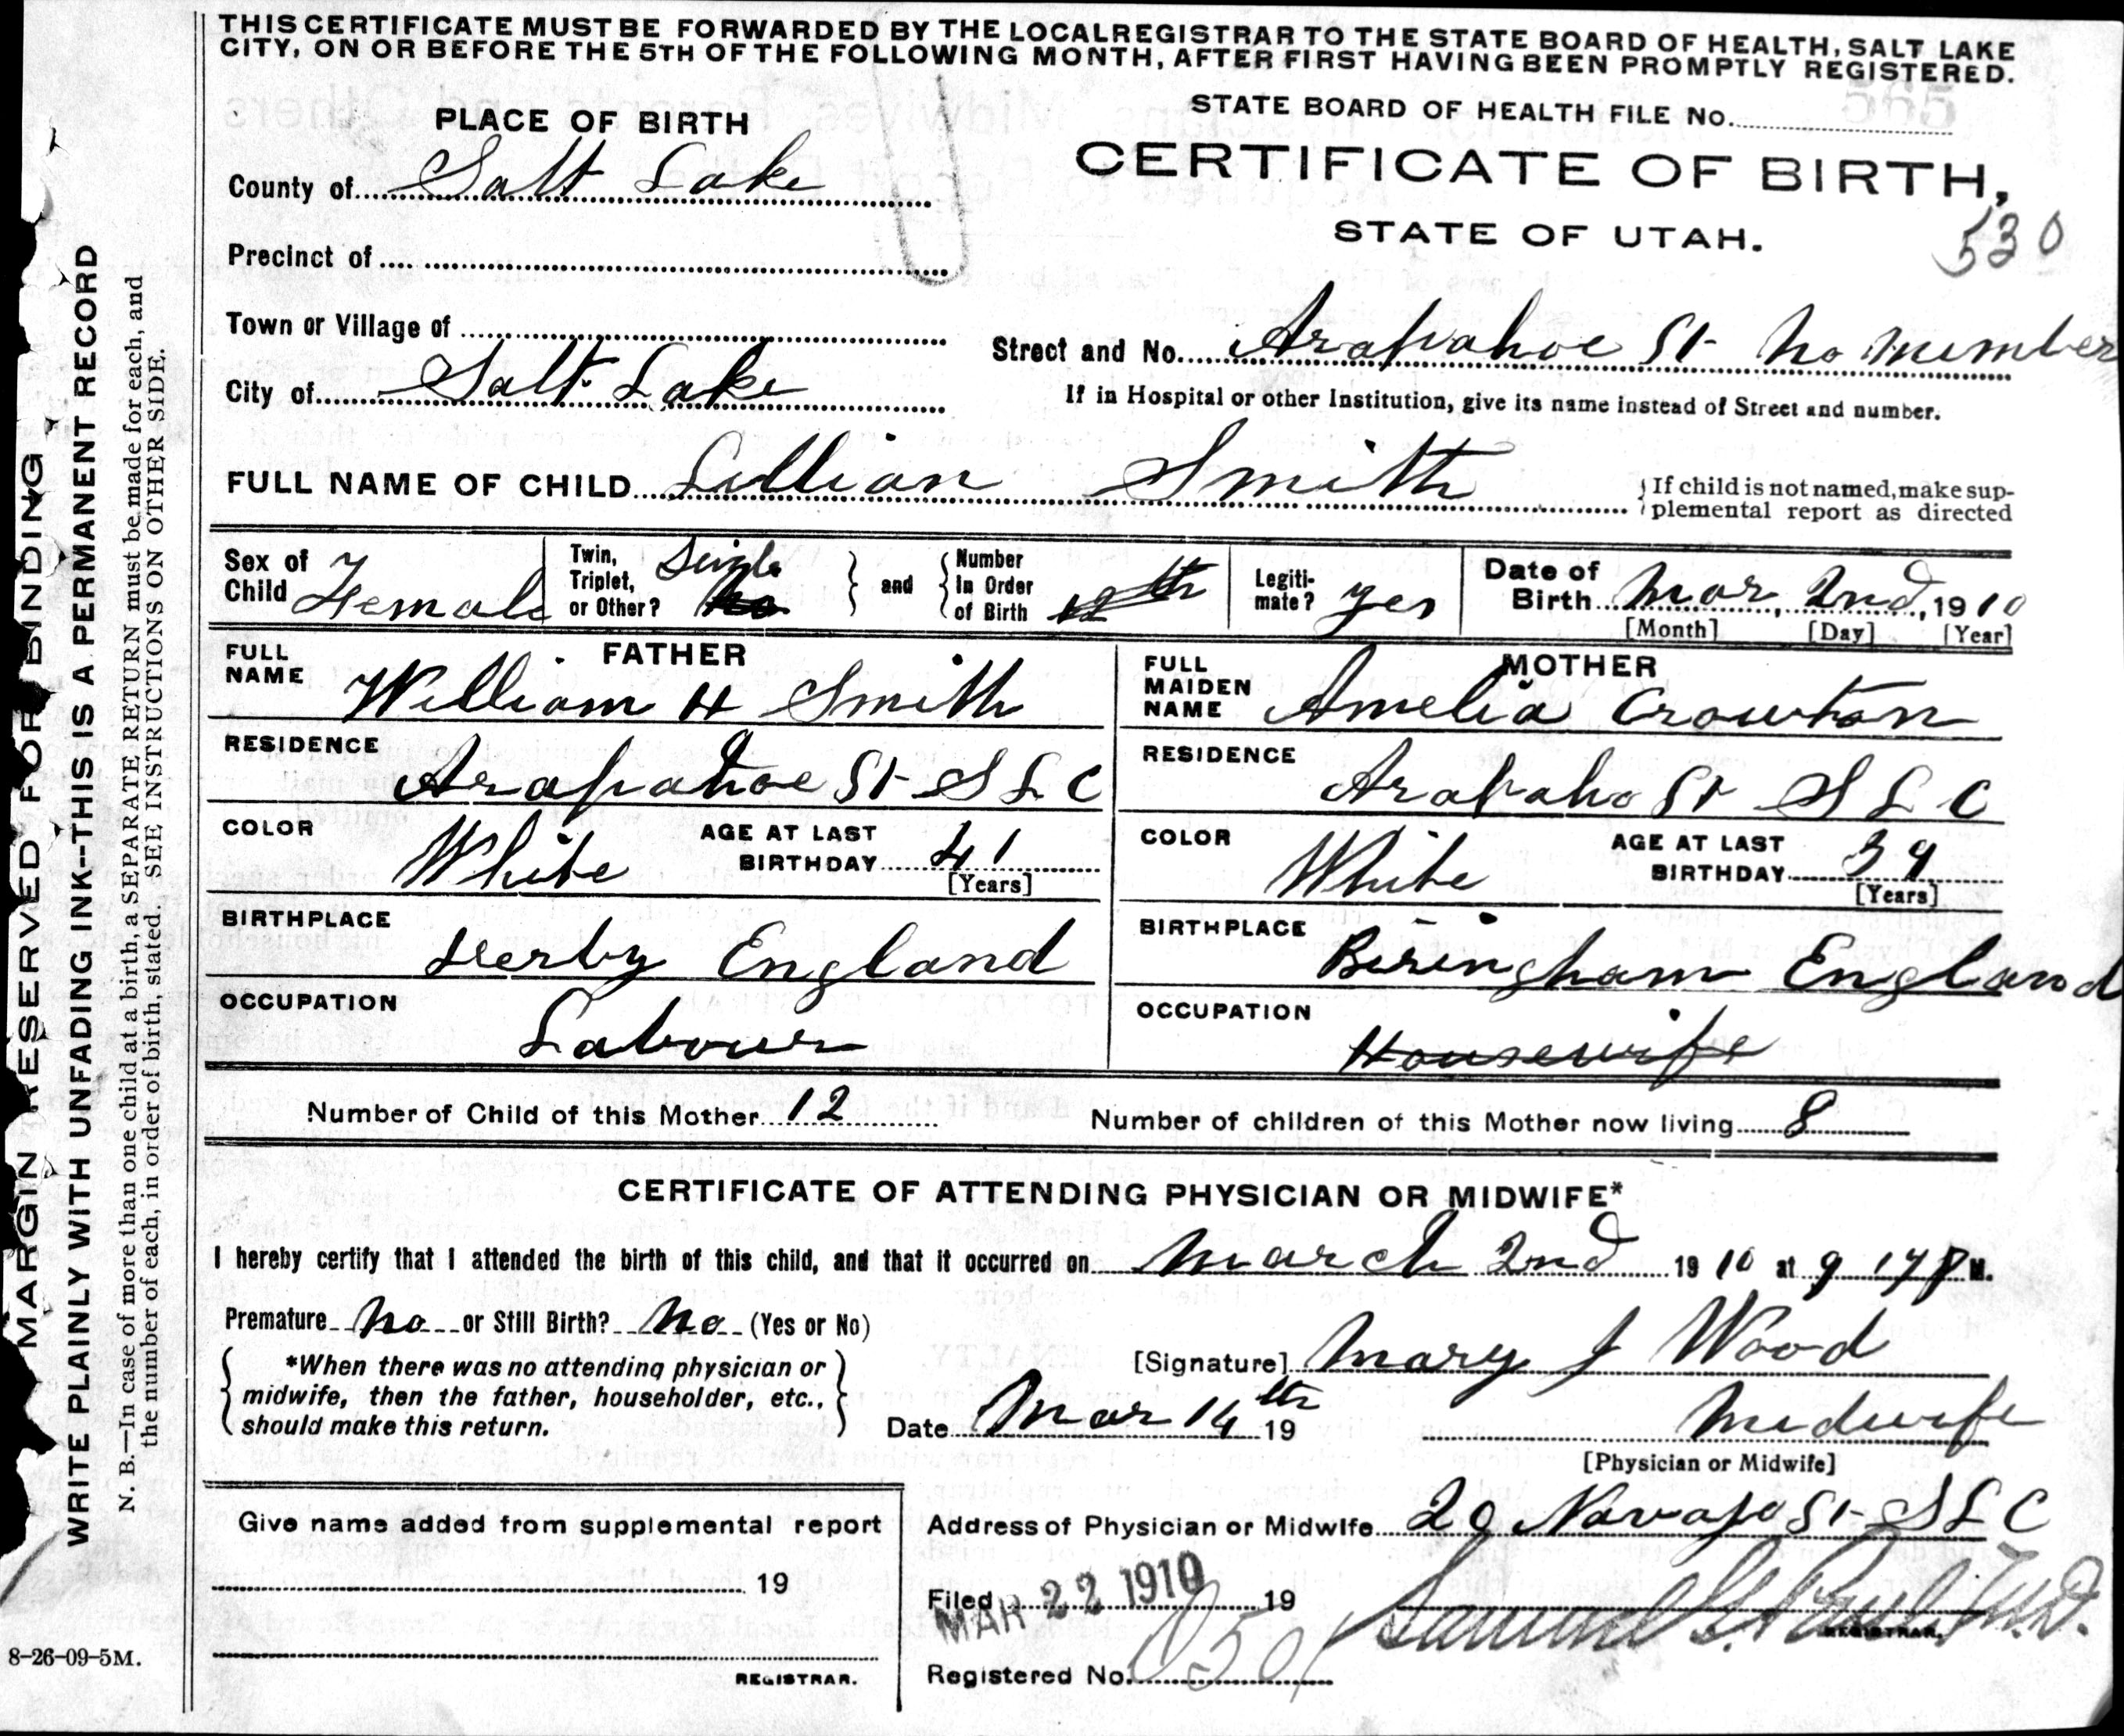 THIS CERTIFICATE MUST BE FORWARDED BY THE LOCAL REGISTRAR TO THE STATE BOARD OF HEALTH, SALT LAKE
CITY, ON OR BEFORE THE 5TH OF THE FOLLOWING MONTH, AFTER FIRST HAVING BEEN PROMPTLY REGISTERED.
STATE BOARD OF HEALTH FILE No. 565
PLACE OF BIRTH
CERTIFICATE OF BIRTH,
County of Salt Lake
STATE OF UTAH.
530
Precinct of
Town or Village of
Street and No. Arapahoe St no number
City of Salt Lake
If in Hospital or other Institution, give its name instead of Street and number.
FULL NAME OF CHILD Lillian Smith
If child is not named, make sup-
plemental report as directed
Sex of Child Female
Twin, Triplet, or Other? Single
and Number In Order of Birth 12th
Legiti-mate? yes
Date of Birth Mar, 2nd, 1910
[Month] [Day] [Year]
FATHER
FULL NAME William H Smith
RESIDENCE Arapahoe St S L C
COLOR White
AGE AT LAST BIRTHDAY 41
[Years]
BIRTHPLACE Derby England
OCCUPATION Labour
MOTHER
FULL MAIDEN NAME Amelia Crowton
RESIDENCE Arapaho St S L C
COLOR White
AGE AT LAST BIRTHDAY 39
[Years]
BIRTHPLACE Beringham England
OCCUPATION Housewife
Number of Child of this Mother 12
Number of children of this Mother now living 8
CERTIFICATE OF ATTENDING PHYSICIAN OR MIDWIFE*
I hereby certify that I attended the birth of this child, and that it occurred on March 2nd 1910 at 9 17 P M.
Premature No or Still Birth? No (Yes or No)
*When there was no attending physician or
midwife, then the father, householder, etc.,
should make this return.
[Signature] Mary J Wood
Date Mar 14th 19
Midwife
[Physician or Midwife]
Give name added from supplemental report
19
REGISTRAR.
Address of Physician or Midwife 29 Navajo St S L C
Filed MAR 22 1910 19
Samuel G. Paul M.D.
REGISTRAR.
Registered No.
MARGIN RESERVED FOR BINDING
WRITE PLAINLY WITH UNFADING INK--THIS IS A PERMANENT RECORD
N. B.—In case of more than one child at a birth, a SEPARATE RETURN must be made for each, and
the number of each, in order of birth, stated. SEE INSTRUCTIONS ON OTHER SIDE.
8-26-09-5M.